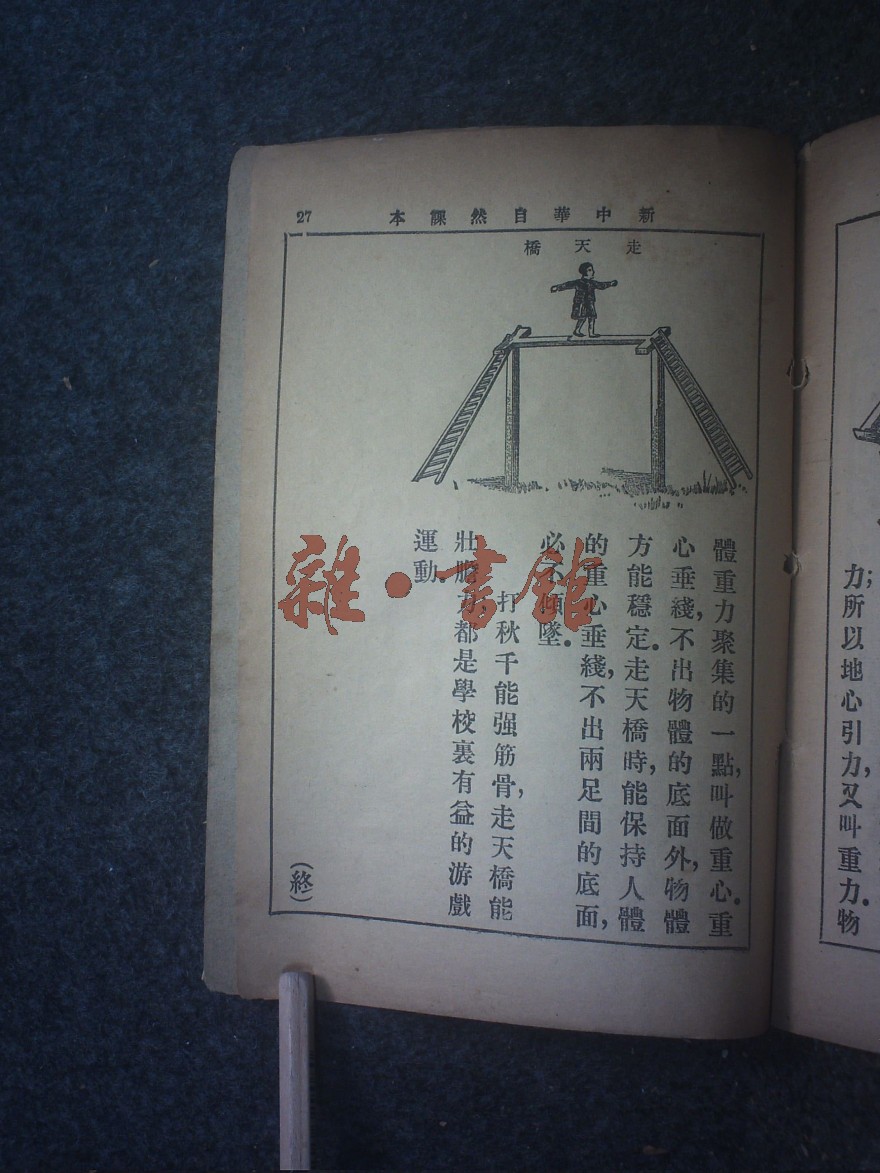 力；所以地心引力，又叫重力。物
新中華自然課本
27
走天橋
體重力聚集的一點，叫做重心。重
心垂綫，不出物體的底面外，物體
方能穩定。走天橋時，能保持人體
的重心垂綫，不出兩足間的底面，
必不傾墜。
打秋千能强筋骨，走天橋能
壯膽，都是學校裏有益的游戲
運動。
（終）
雜·書館